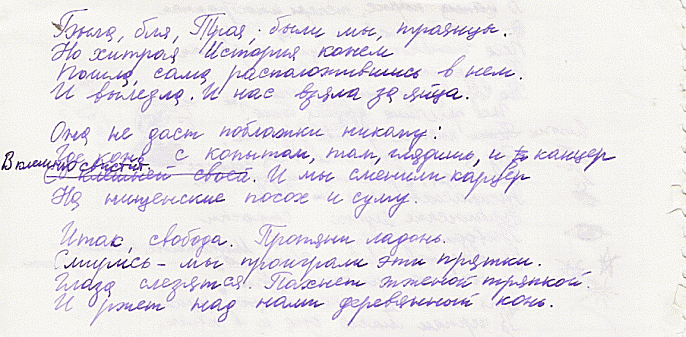 Была, бля, Троя; были мы, троянцы.
Но хитрая История конем
Пошла, сама расположившись в нем.
И вылезла. И нас взяла за яйца.
Она не даст поблажки никому:
Где конь с копытом, там, глядишь, и канцер
В клешню свистит. И мы сменили карцер
На нищенские посох и суму.
Итак, свобода. Протяни ладонь.
Смирись – мы проиграли эти прятки.
Глаза слезятся. Пахнет жженой тряпкой.
И ржет над нами деревянный конь.